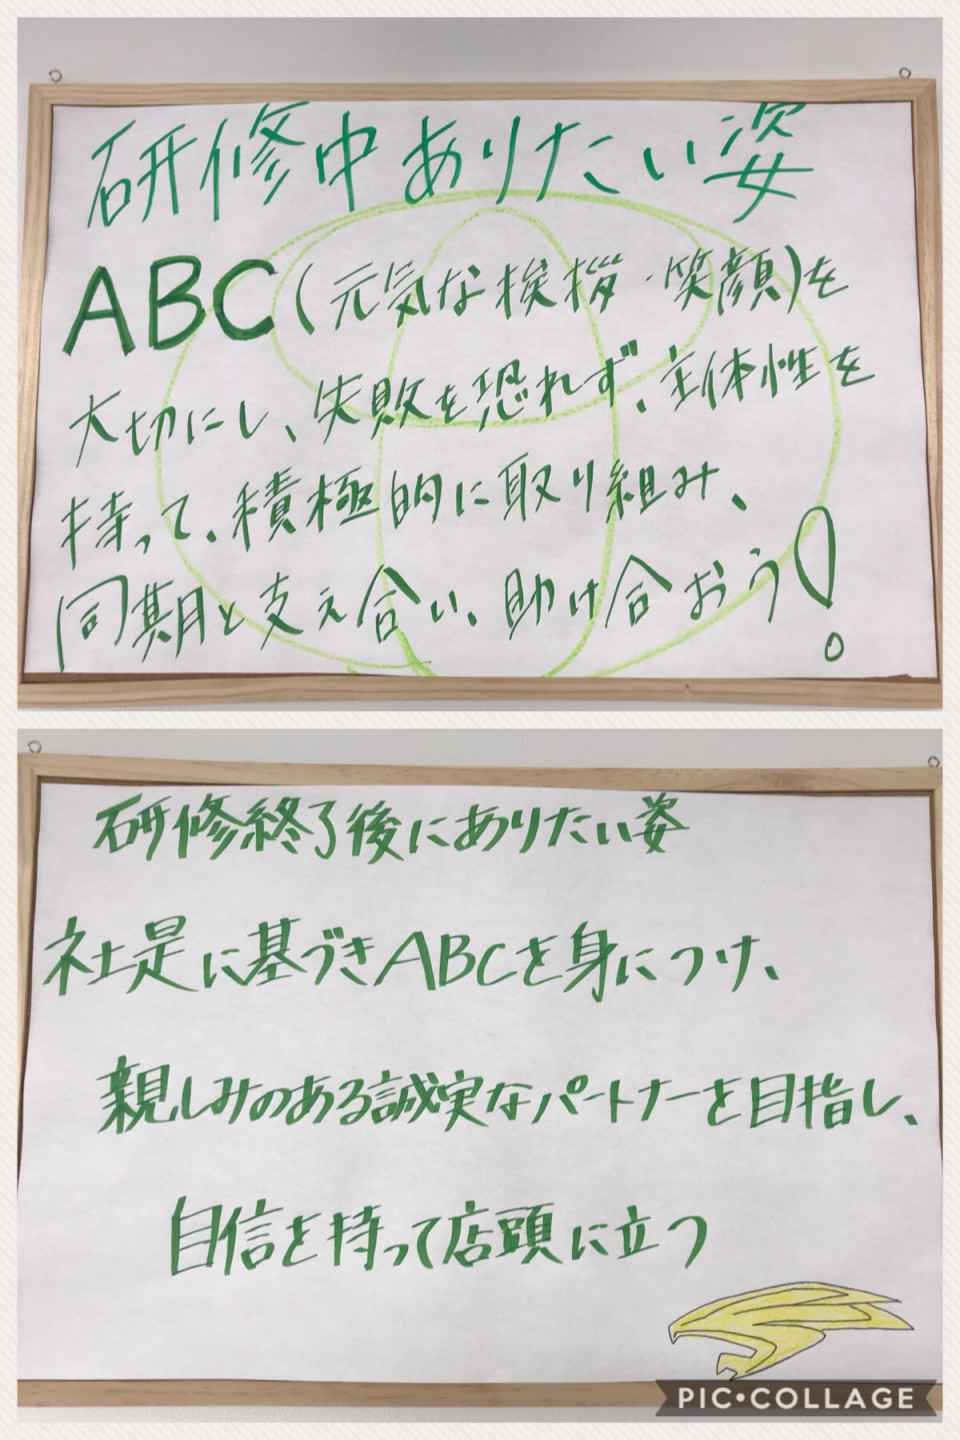 研修中ありたい姿
ABC(元気な挨拶・笑顔)を
大切にし、失敗を恐れず、主体性を
持って、積極的に取り組み、
同期と支え合い、助け合おう!
研修終了後にありたい姿
社是に基づきABCを身につけ、
親しみのある誠実なパートナーを目指し、
自信を持って店頭に立つ
PIC•COLLAGE